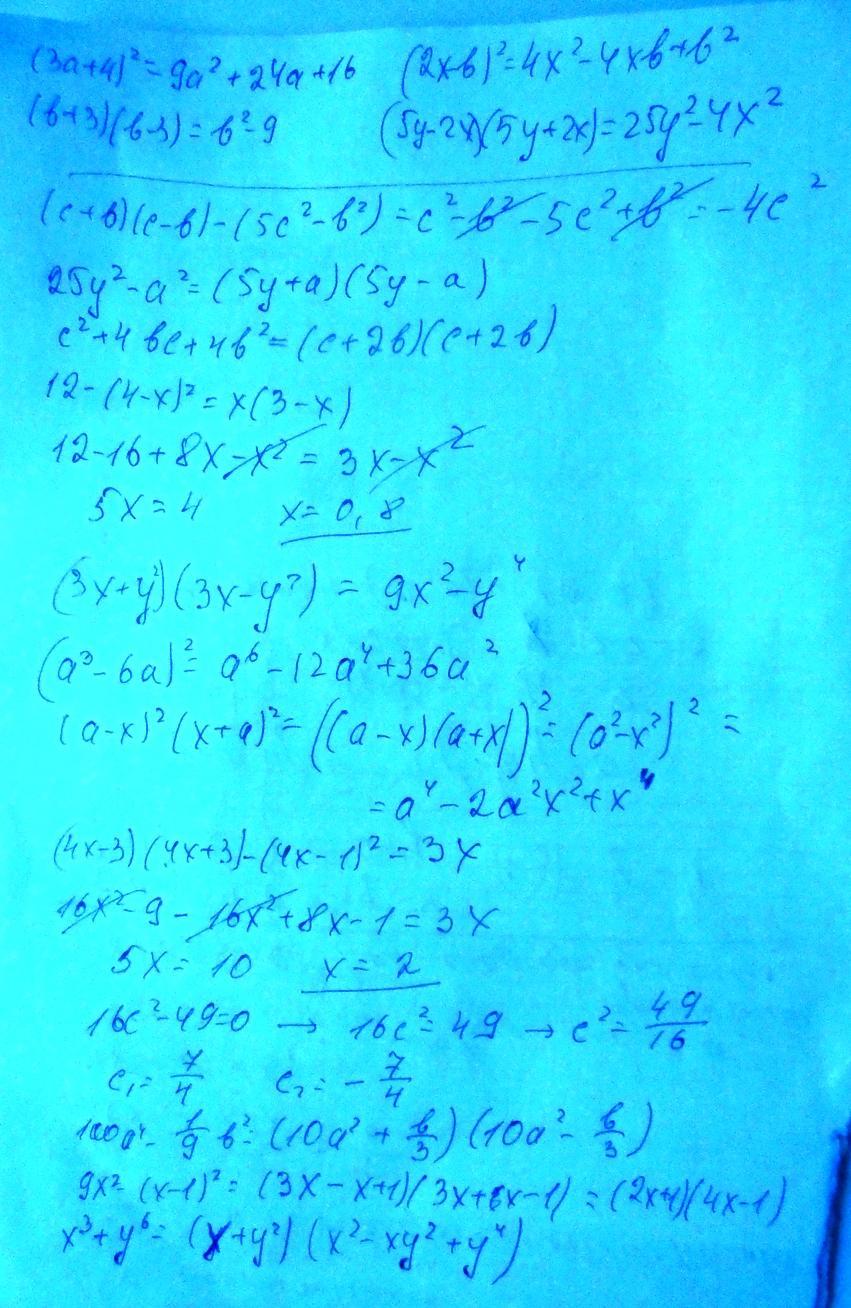 (3a+4)²=9a²+24a+16 (2x-b)²=4x²-4xb+b²
(b+3)(b-3)=b²-9 (5y-2x)(5y+2x)=25y²-4x²
(c+b)(c-b)-(5c²-b²)=c²-b²-5c²+b²=-4c²
25y²-a²=(5y+a)(5y-a)
c²+4bc+4b²=(c+2b)(c+2b)
12-(4-x)²=x(3-x)
12-16+8x-x²=3x-x²
5x=4 x=0,8
(3x+y²)(3x-y²)=9x²-y⁴
(a³-6a)²=a⁶-12a⁴+36a²
(a-x)²(x+a)²=((a-x)(a+x))²=(a²-x²)²=
=a⁴-2a²x²+x⁴
(4x-3)(4x+3)-(4x-1)²=3x
16x²-9-16x²+8x-1=3x
5x=10 x=2
16c²-49=0 → 16c²=49 → c²=49/16
c₁=7/4 c₂=-7/4
100a⁴-1/9b²=(10a²+b/3)(10a²-b/3)
9x²-(x-1)²=(3x-x+1)(3x+x-1)=(2x+1)(4x-1)
x³+y⁶=(x+y²)(x²-xy²+y⁴)